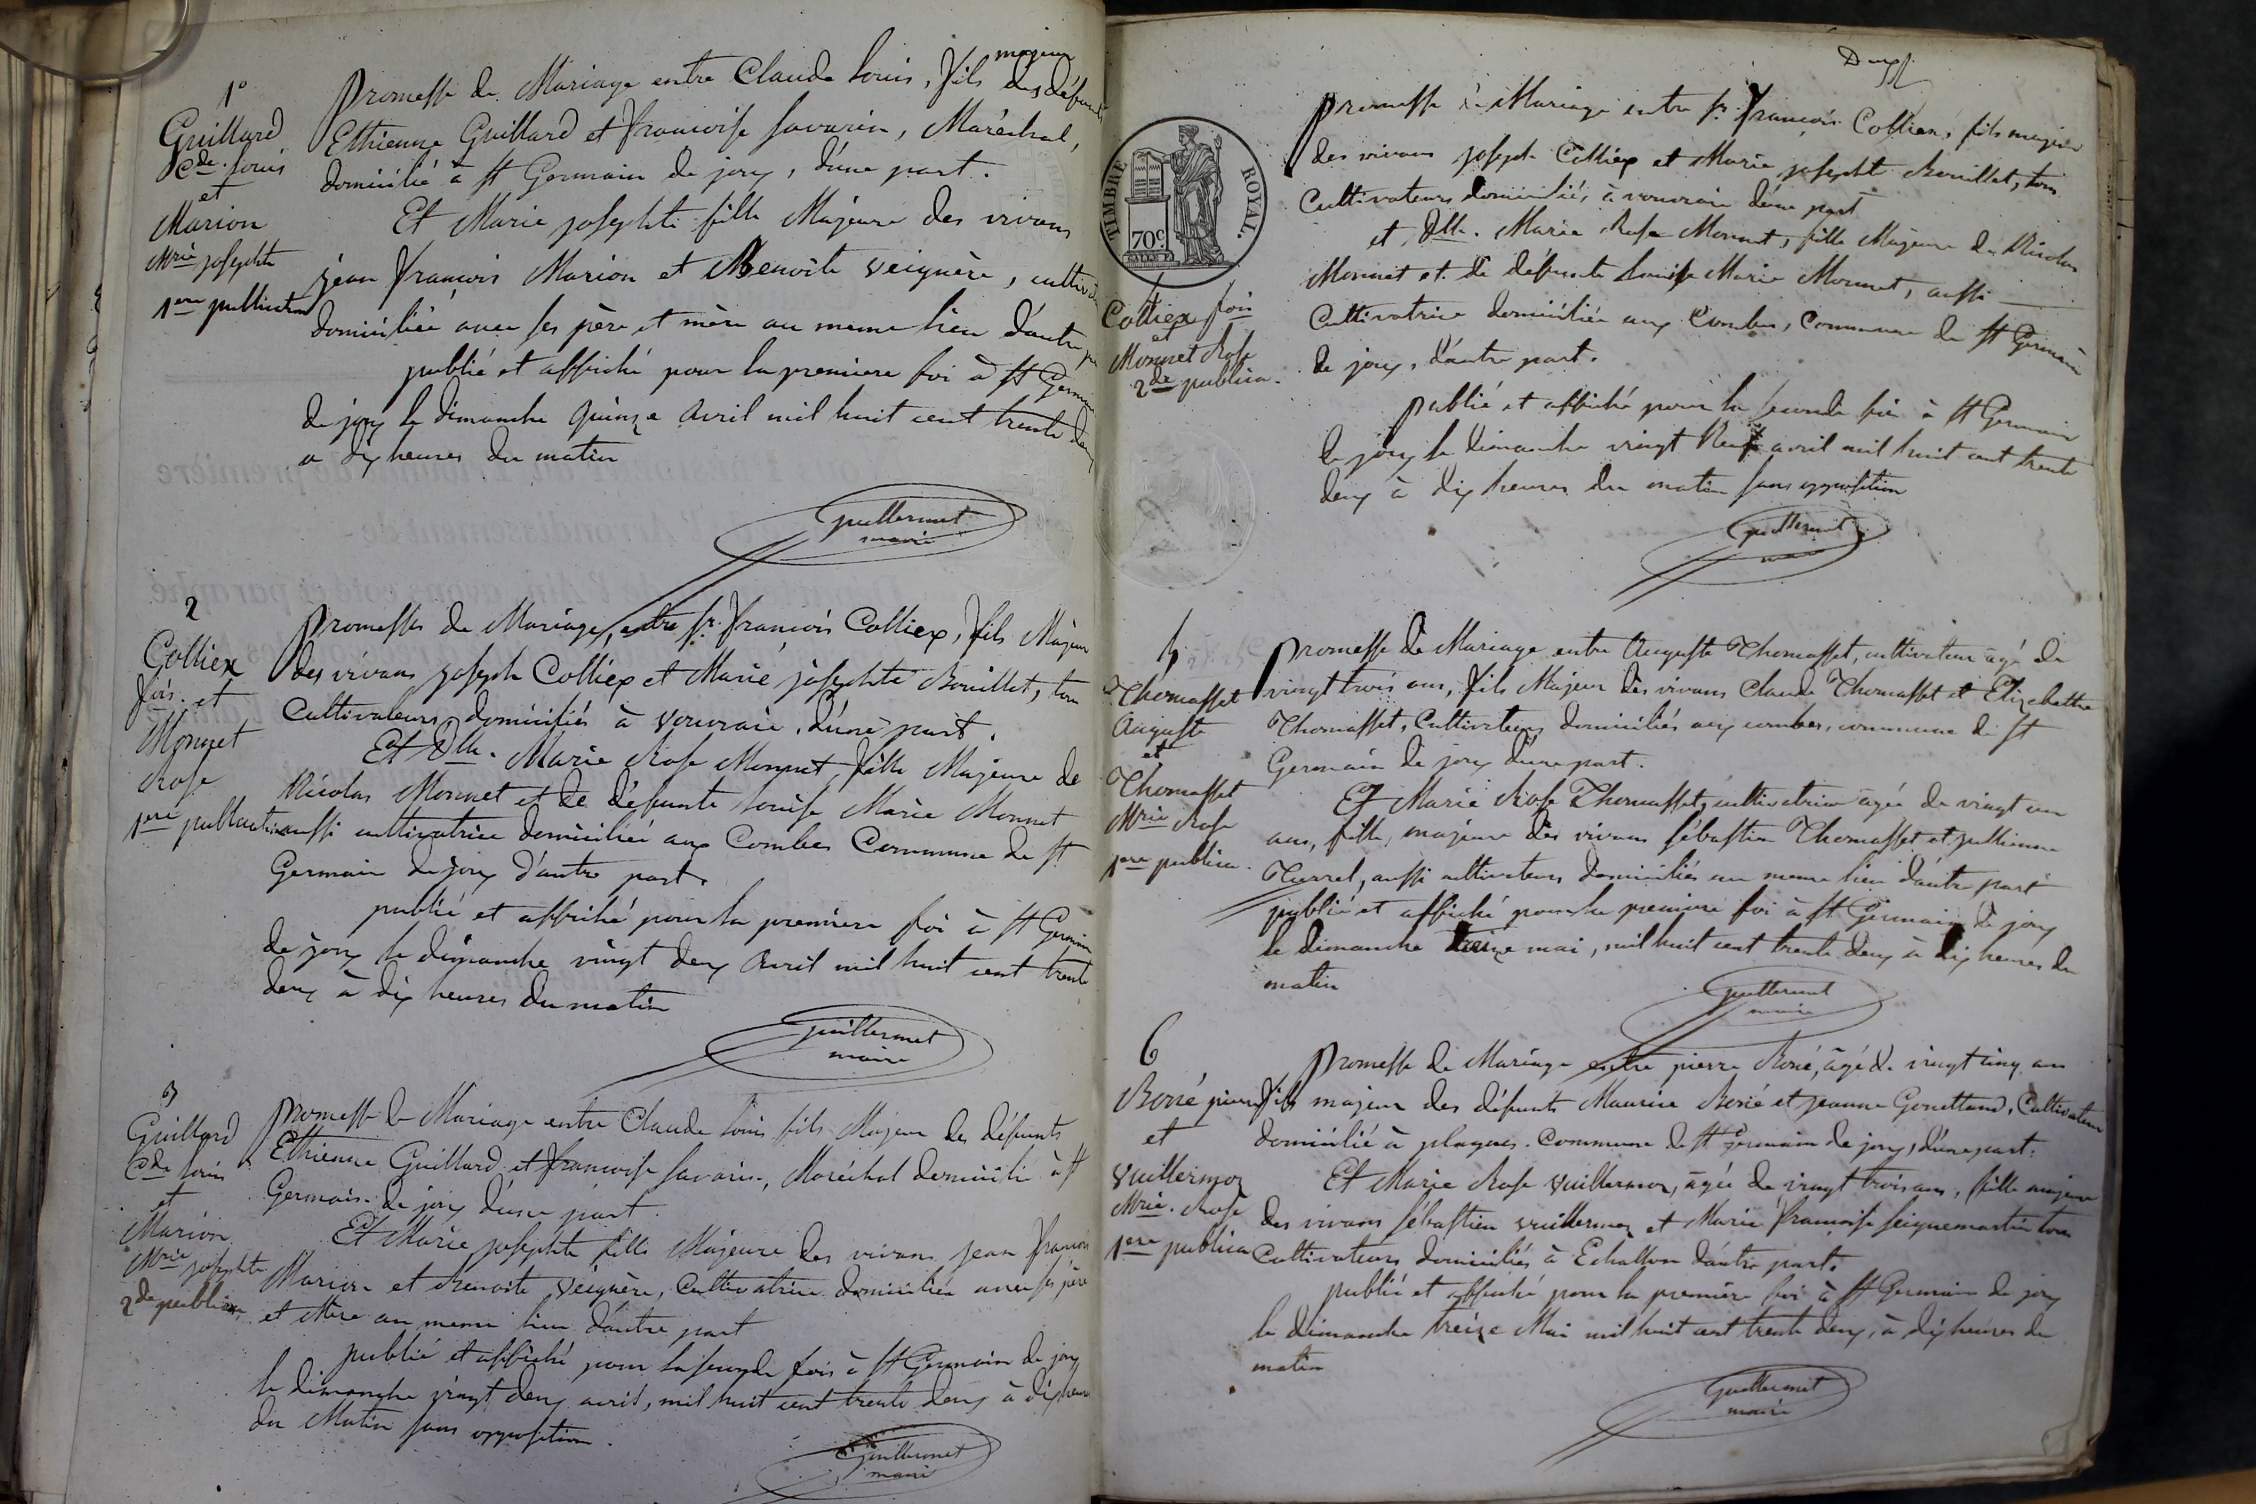 1°
Guillard
Cde. Louis
et
Marion
Mrie josephte
1ere publication
majeur
Promesse de Mariage entre Claude Louis, fils des défunts
Ethienne Guillard et françoise Savarin, Maréchal,
domicilié à St Germain de joux, d'une part.
Et Marie josephte fille Majeure des vivans
jean françois Marion et Benoite Seignère,
domiciliée avec ses père et mère au meme lieu d'autre
publié et affiché pour la premiere foi à St Germain
de joux le dimanche quinze avril mil huit cent trente deux
a dix heures du matin
guillermet
maire
2
Colliex
fois. et
Monnet
Rose
1ere publication
Promesse de Mariage, entre sr. françois Colliex, fils Majeur
des vivans joseph Colliex et Marie josephte Bouillet, tous
Cultivateurs domiciliés à vouvraie, d'une part.
Et Dlle. Marie Rose Monnet, fille Majeure de
Nicolas Monnet et de défunte Louise Marie Monnet
aussi cultivatrice domiciliée aux Combes Commune de St
Germain de joux d'autre part.
publié et affiché pour la premiere foi à St Germain
de joux le dimanche vingt deux avril mil huit cent trente
deux à dix heures du matin
guillermet
maire
3
Guillard
Cde Louis
et
Marion
Mrie josephte
2de publica.
Promesse de Mariage entre Claude Louis fils Majeur des défunts
Ethienne Guillard et françoise Savarin, Maréchal domicilié à St
Germain de joux d'une part.
Et Marie josephte fille Majeure des vivans jean françois
Marion et Benoite Seignère, Cultivatrice domiciliée avec ses père
et Mère au meme lieu d'autre part
publié et affiché pour la seconde fois à St Germain de joux
le dimanche vingt deux avril, mil huit cent trente deux à dix heures
du Matin sans opposition.
Guillermet
maire
Deux
TIMBRE ROYAL.
70c
4
Colliex fois
et
Monnet Rose
2de publica.
Promesse de Mariage entre sr. françois Colliex, fils majeur
des vivans joseph Colliex et Marie josephte Bouillet, tous
Cultivateurs domiciliés à vouvraie d'une part
et Dlle. Marie Rose Monnet, fille Majeure de Nicolas
Monnet et de défunte Louise Marie Monnet, aussi
Cultivatrice domiciliée aux Combes, Commune de St Germain
de joux, d'autre part.
Publié et affiché pour la seconde foi à St Germain
de joux le dimanche vingt Neuf avril mil huit cent trente
deux à dix heures du matin sans opposition
guillermet
maire
5
Thomasset
Auguste
et
Thomasset
Mrie Rose
1ere publica.
Promesse de Mariage entre Auguste Thomasset, cultivateur agé de
vingt trois ans, fils Majeur des vivans Claude Thomasset et Elizabethe
Thomasset, Cultivateurs domiciliés aux combes, commune de St
Germain de joux d'une part.
Et Marie Rose Thomasset, cultivatrice agée de vingt un
ans, fille majeure des vivans Sébastien Thomasset et jullienne
Turrel, aussi cultivateurs domiciliés au meme lieu d'autre part
publié et affiché pour la premiere foi à St Germain de joux
le dimanche treize mai, mil huit cent trente deux à dix heures du
matin
guillermet
maire
6
Boné pierre
et
Vuillermoz
Mrie. Rose
1ere publica
Promesse de Mariage entre pierre Boné, âgé de vingt cinq ans
fils majeur des défunts Maurice Boné et jeanne Gouettand, Cultivateur
domicilié à plagnes. Commune de St Germain de joux, d'une part.
Et Marie Rose Vuillermoz, agée de vingt trois ans, fille majeure
des vivans Sébastien Vuillermoz et Marie françoise Seignemartin tous
Cultivateurs domiciliés à Echallon d'autre part.
publié et affiché pour la première foi à St Germain de joux
le dimanche treize Mai mil huit cent trente deux, à dix heures du
matin
Guillermet
maire